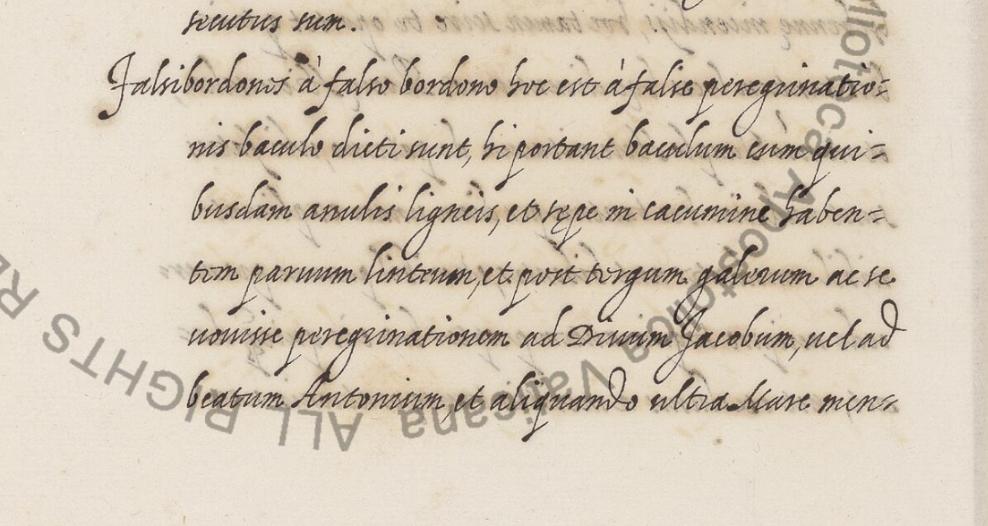 secutus sum.
Falsibordones à falso bordono hoc est à false peregrinatio=
nis baculo dicti sunt, hi portant baculum cum qui=
busdam anulis ligneis, et sępe in cacumine haben=
tem paruum linteum, et post tergum galerum ac se
uouisse peregrinationem ad Diuum Jacobum, uel ad
beatum Antonium, et aliquando ultra Mare men=
Apostolica Vaticana ALL RIGHTS RE